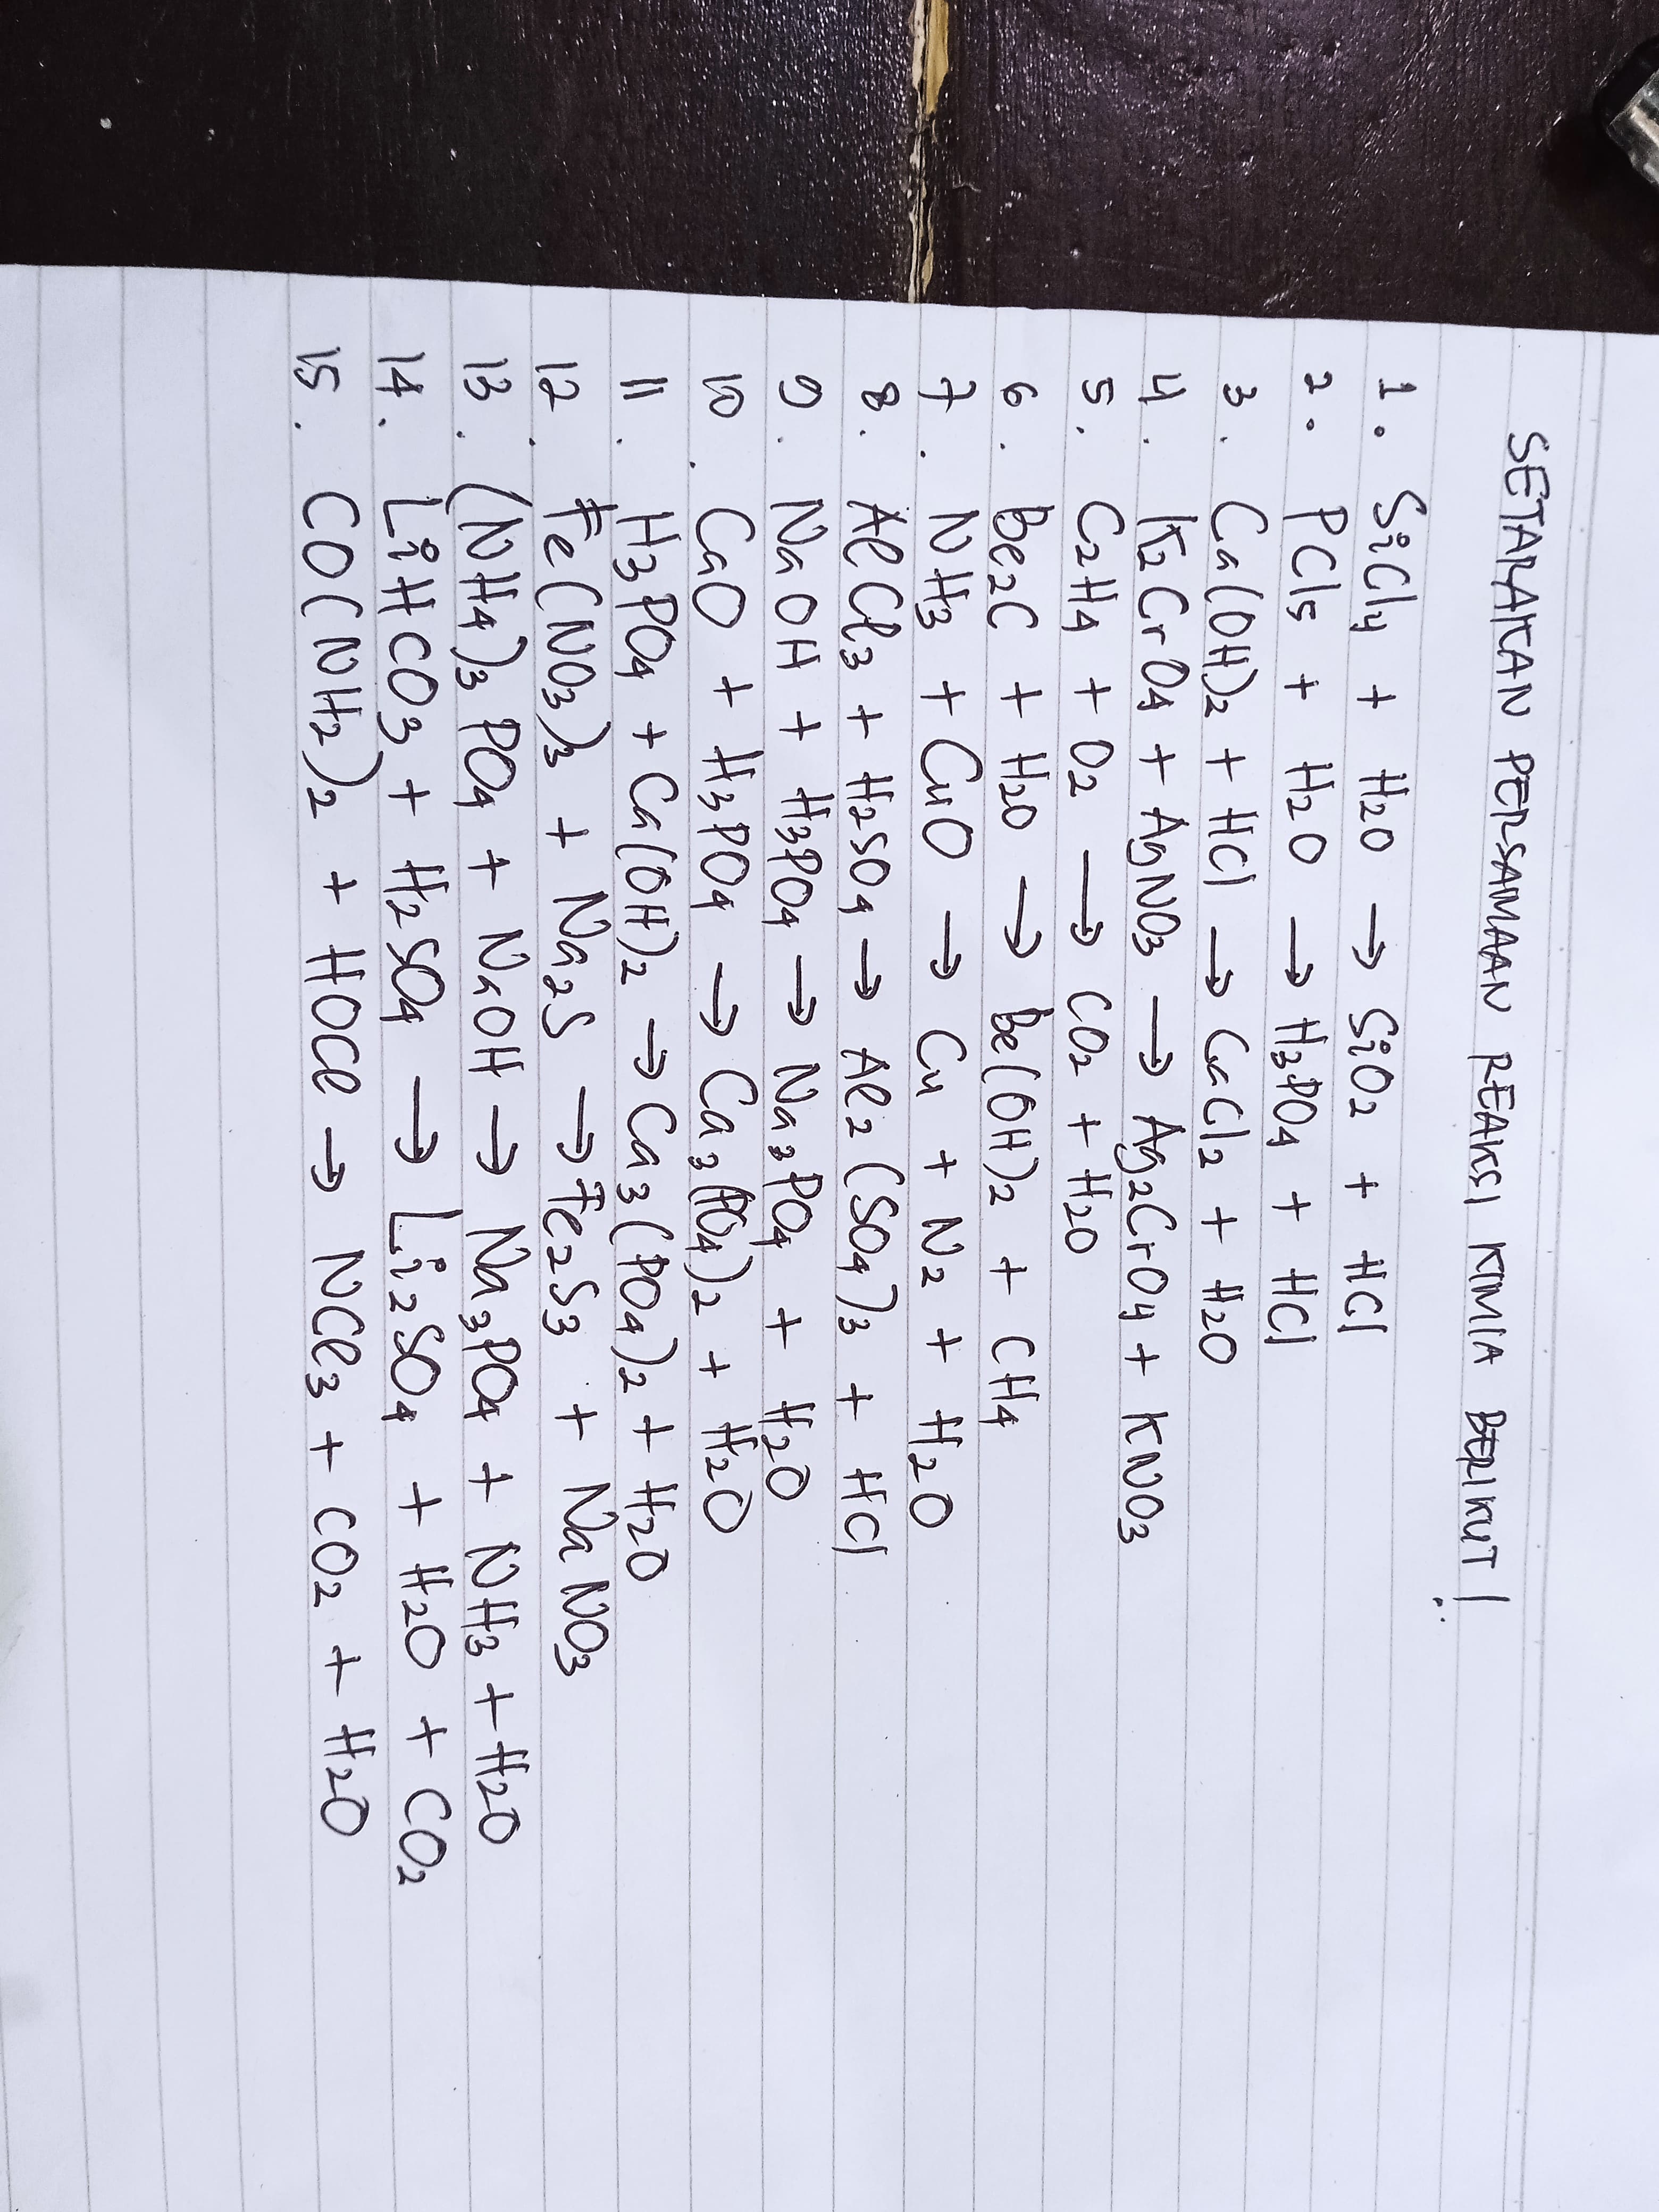 SETARAKAN PERSAMAAN REAKSI KIMIA BERIKUT !
1. SiCl4 + H2O → SiO2 + HCl
2. PCl5 + H2O → H3PO4 + HCl
3. Ca(OH)2 + HCl → CaCl2 + H2O
4. K2CrO4 + AgNO3 → Ag2CrO4 + KNO3
5. C2H4 + O2 → CO2 + H2O
6. Be2C + H2O → Be(OH)2 + CH4
7. NH3 + CuO → Cu + N2 + H2O
8. AlCl3 + H2SO4 → Al2(SO4)3 + HCl
9. NaOH + H3PO4 → Na3PO4 + H2O
10. CaO + H3PO4 → Ca3(PO4)2 + H2O
11. H3PO4 + Ca(OH)2 → Ca3(PO4)2 + H2O
12. Fe(NO3)3 + Na2S → Fe2S3 + NaNO3
13. (NH4)3PO4 + NaOH → Na3PO4 + NH3 + H2O
14. LiHCO3 + H2SO4 → Li2SO4 + H2O + CO2
15. CO(NH2)2 + HOCl → NCl3 + CO2 + H2O